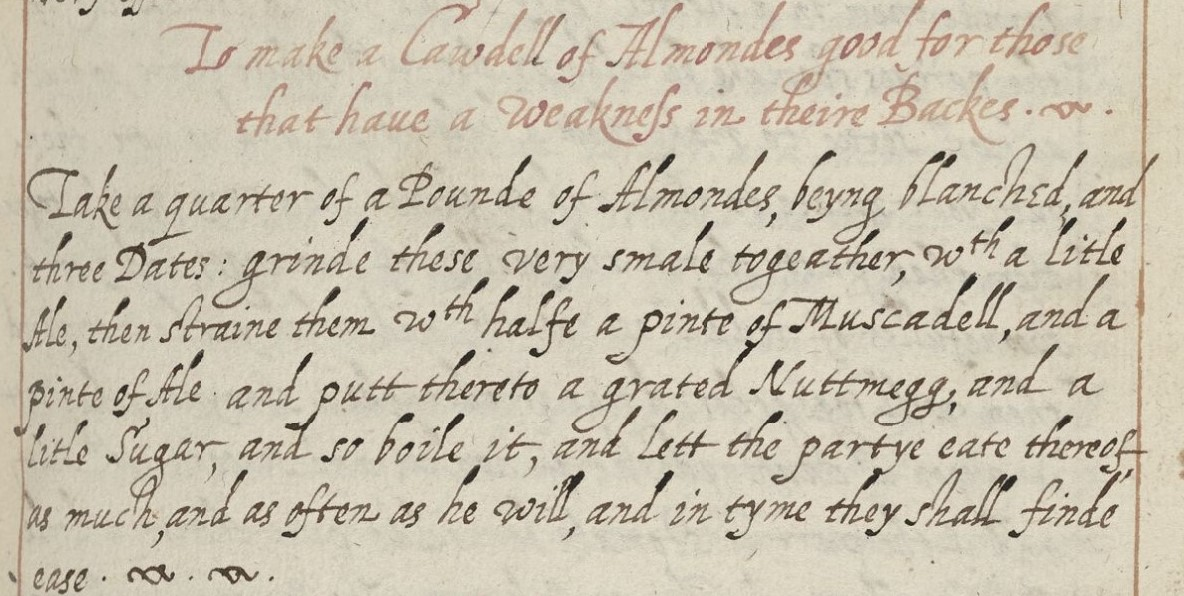 To make a Cawdell of Almondes good for those
that haue a Weakness in theire Backes.
Take a quarter of a Pounde of Almondes, beyng blanched, and
three Dates: grinde these very smale togeather, wth a litle
Ale, then straine them wth halfe a pinte of Muscadell, and a
pinte of Ale and putt thereto a grated Nuttmegg, and a
litle Sugar, and so boile it, and lett the partye eate thereof,
as much, and as often as he will, and in tyme they shall finde
ease.